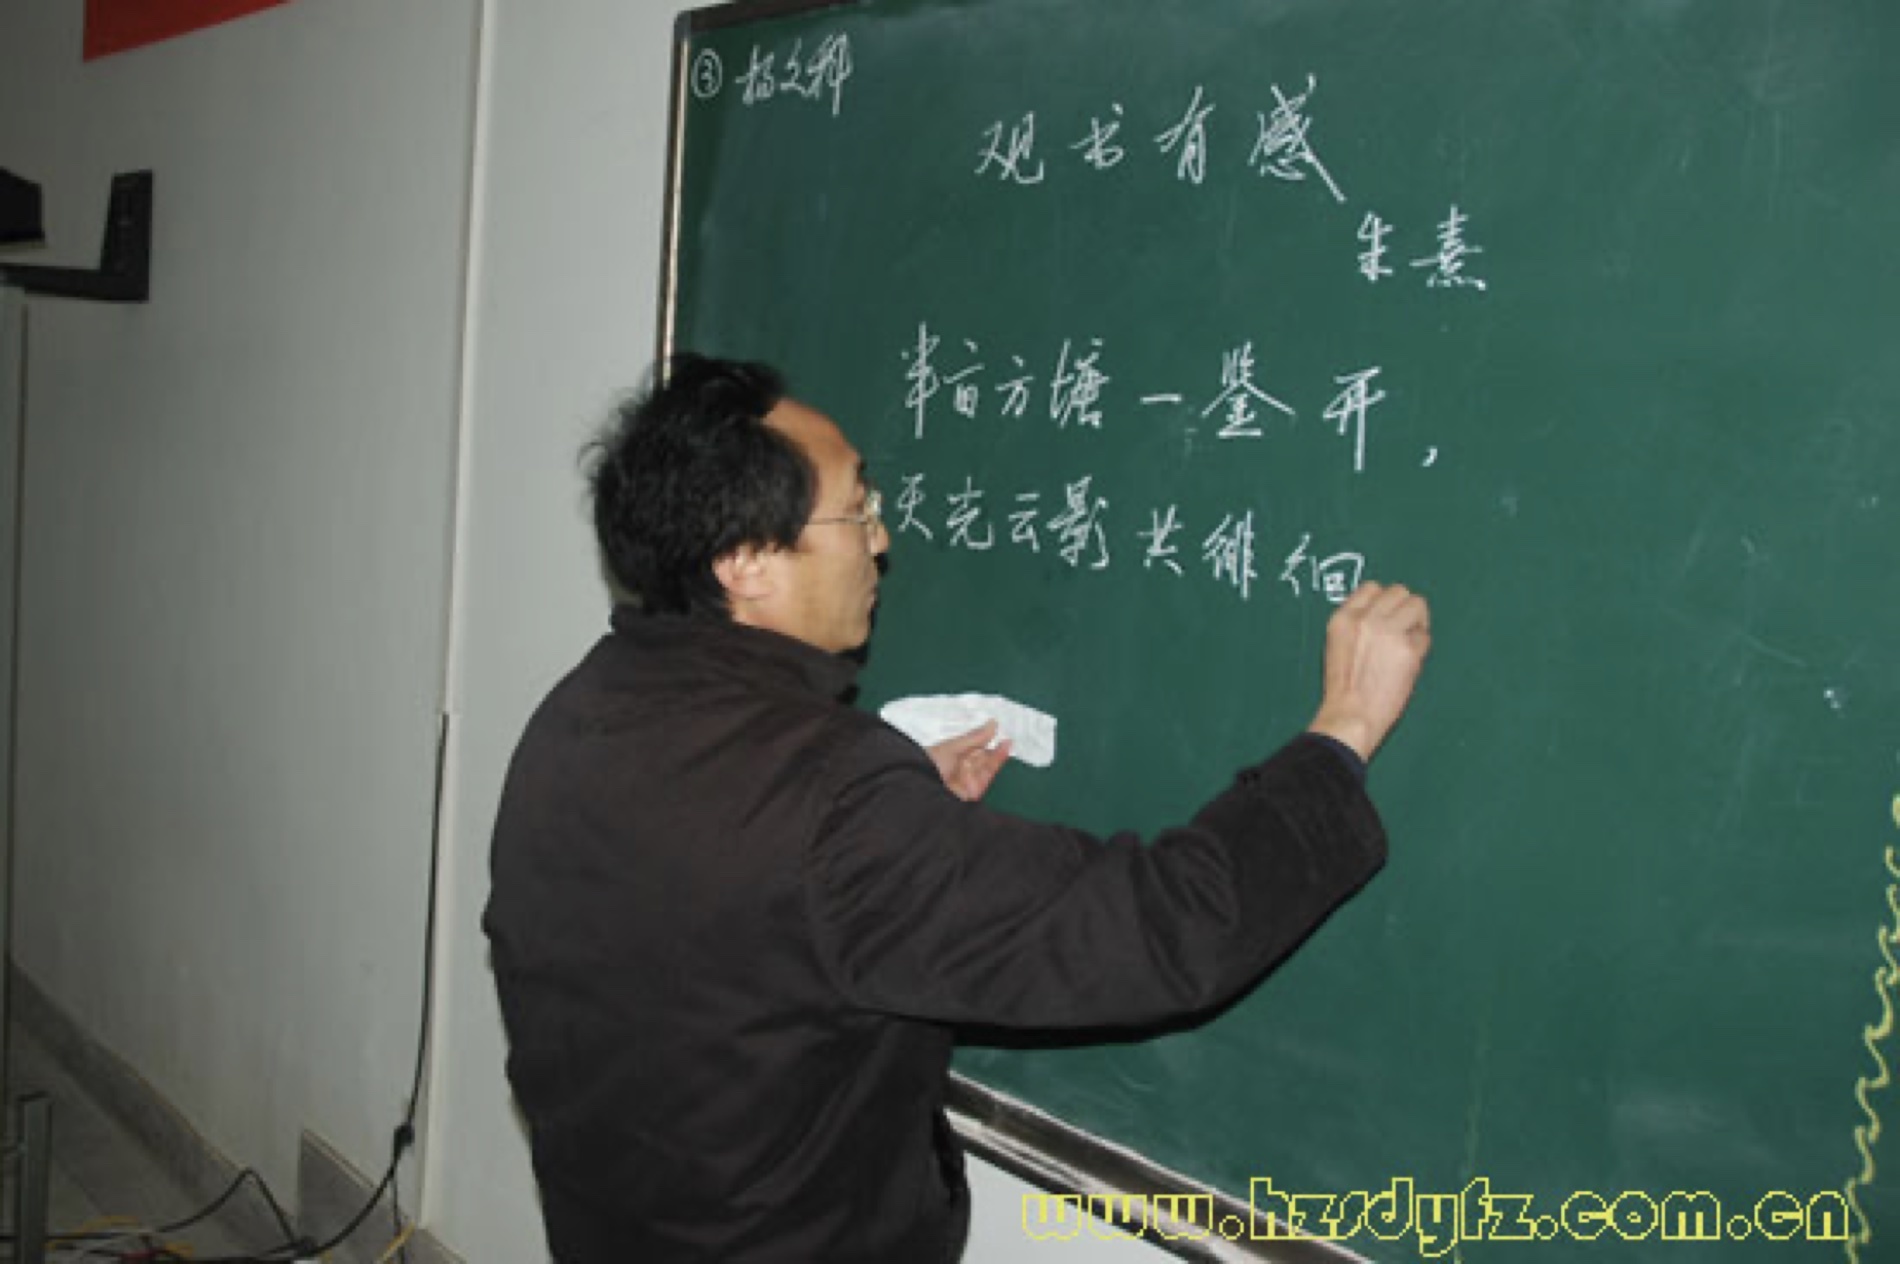 ③ 杨文科
观书有感
朱熹
半亩方塘一鉴开，
天光云影共徘徊
www.hzsdyfz.com.cn